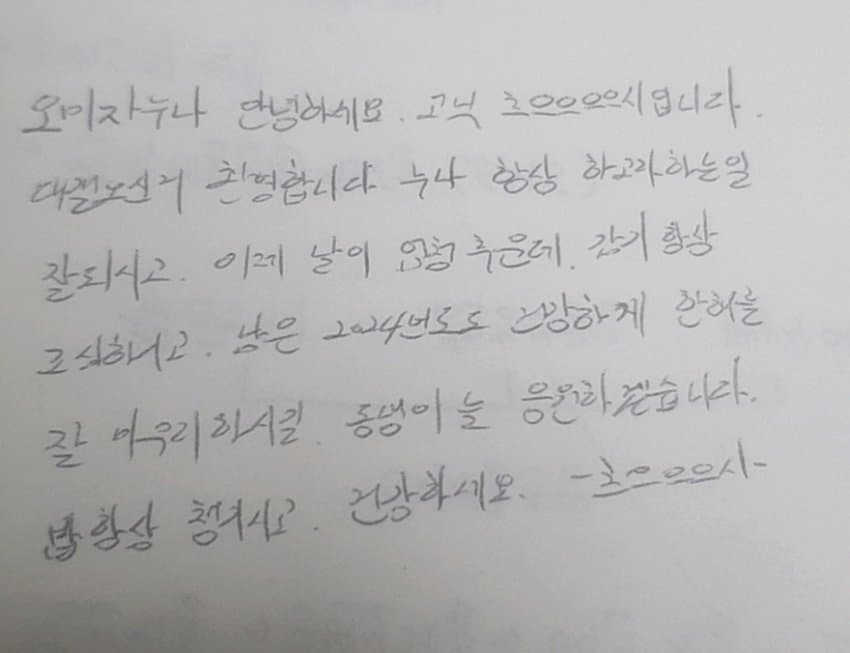 오미자누나 안녕하세요. 고닉 흐으으으으시입니다.
환영합니다 누나 항상 하고자하는일
잘되시고. 이제 날이 엄청 추운데. 감기 항상
조심하시고. 남은 2024년도도 건강하게 한해를
잘 마무리하시길. 동생이 늘 응원하겠습니다.
밥 항상 챙겨시고. 건강하세요.